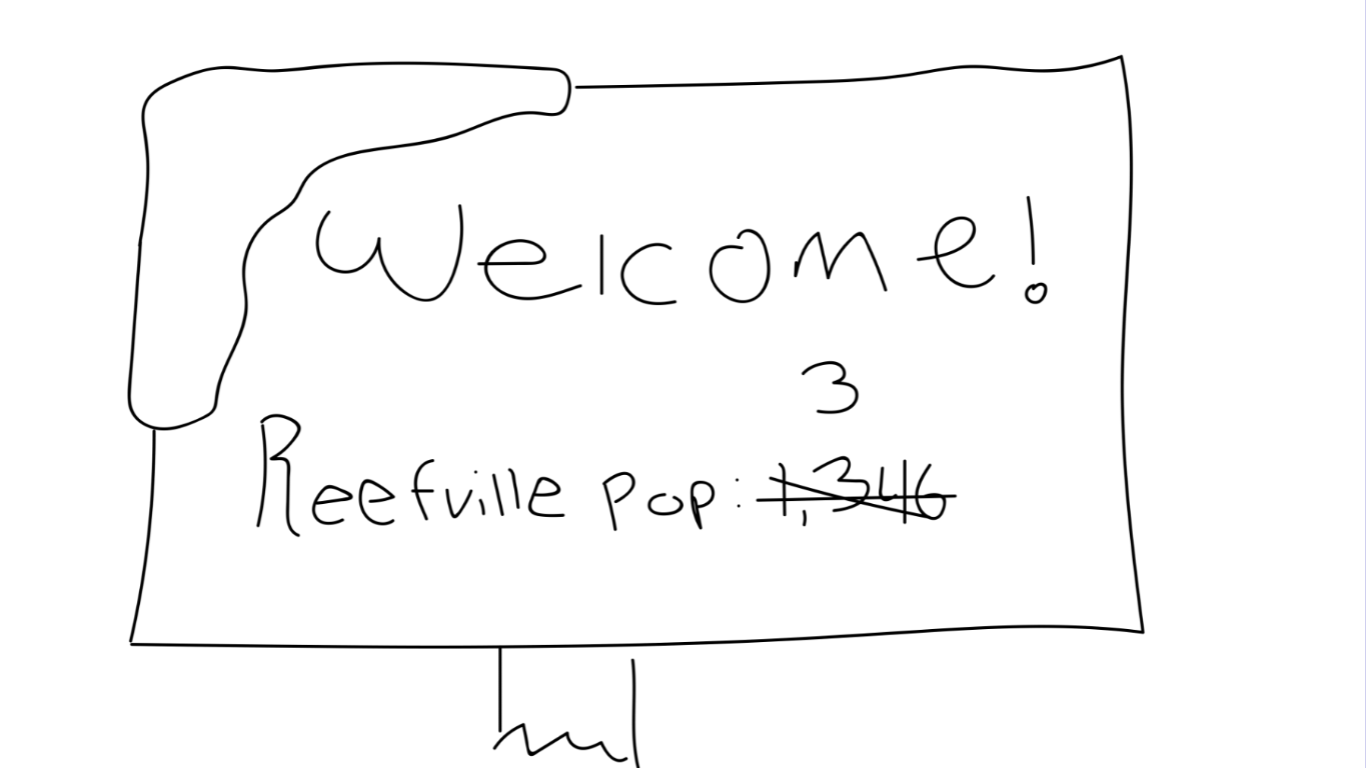 Welcome!
3
Reefville Pop: 1,346